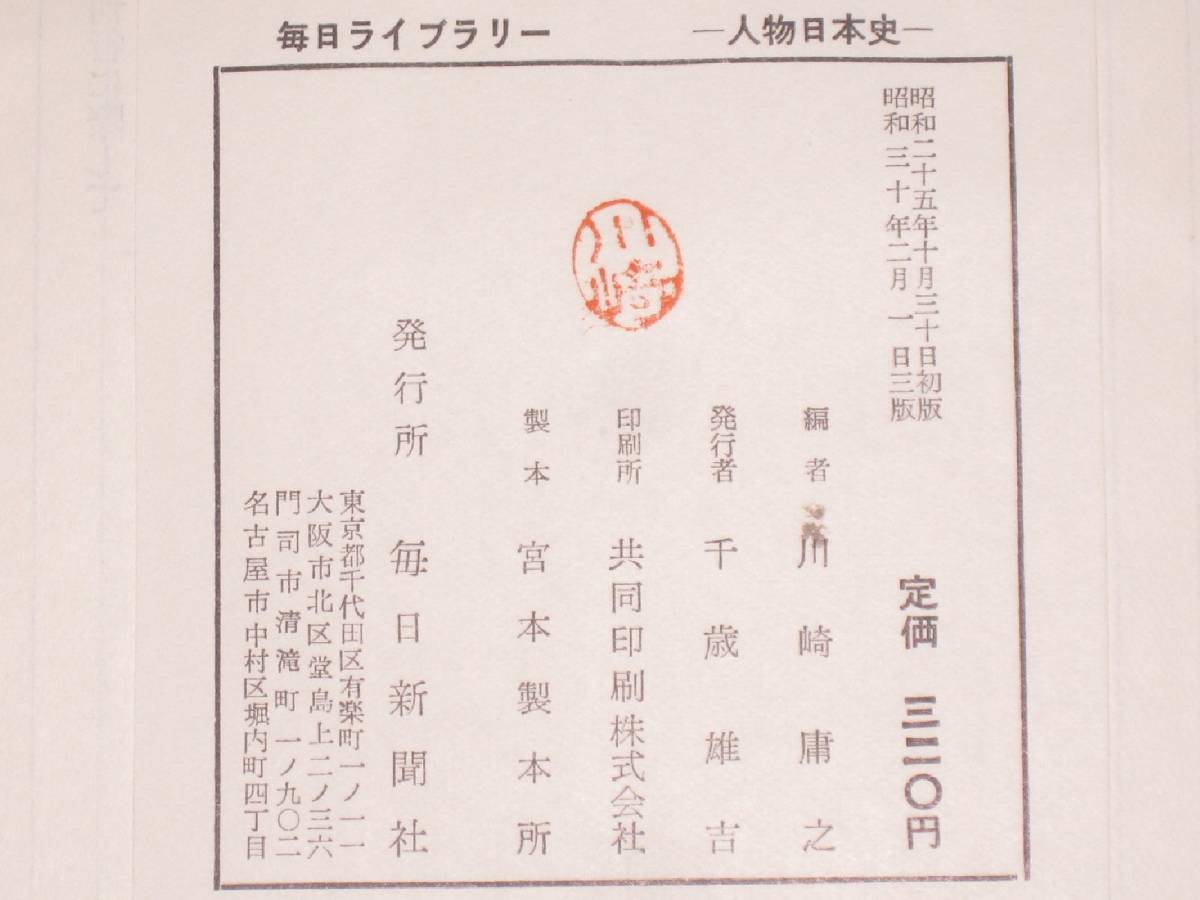 毎日ライブラリー　―人物日本史―
昭和二十五年十月三十日初版
昭和三十年二月一日三版
定価　三二〇円
編者　川崎庸之
発行者　千歳雄吉
印刷所　共同印刷株式会社
川崎
製本　宮本製本所
発行所　毎日新聞社
東京都千代田区有楽町一ノ一一
大阪市北区堂島上二ノ三六
門司市清滝町一ノ九〇二
名古屋市中村区堀内町四丁目